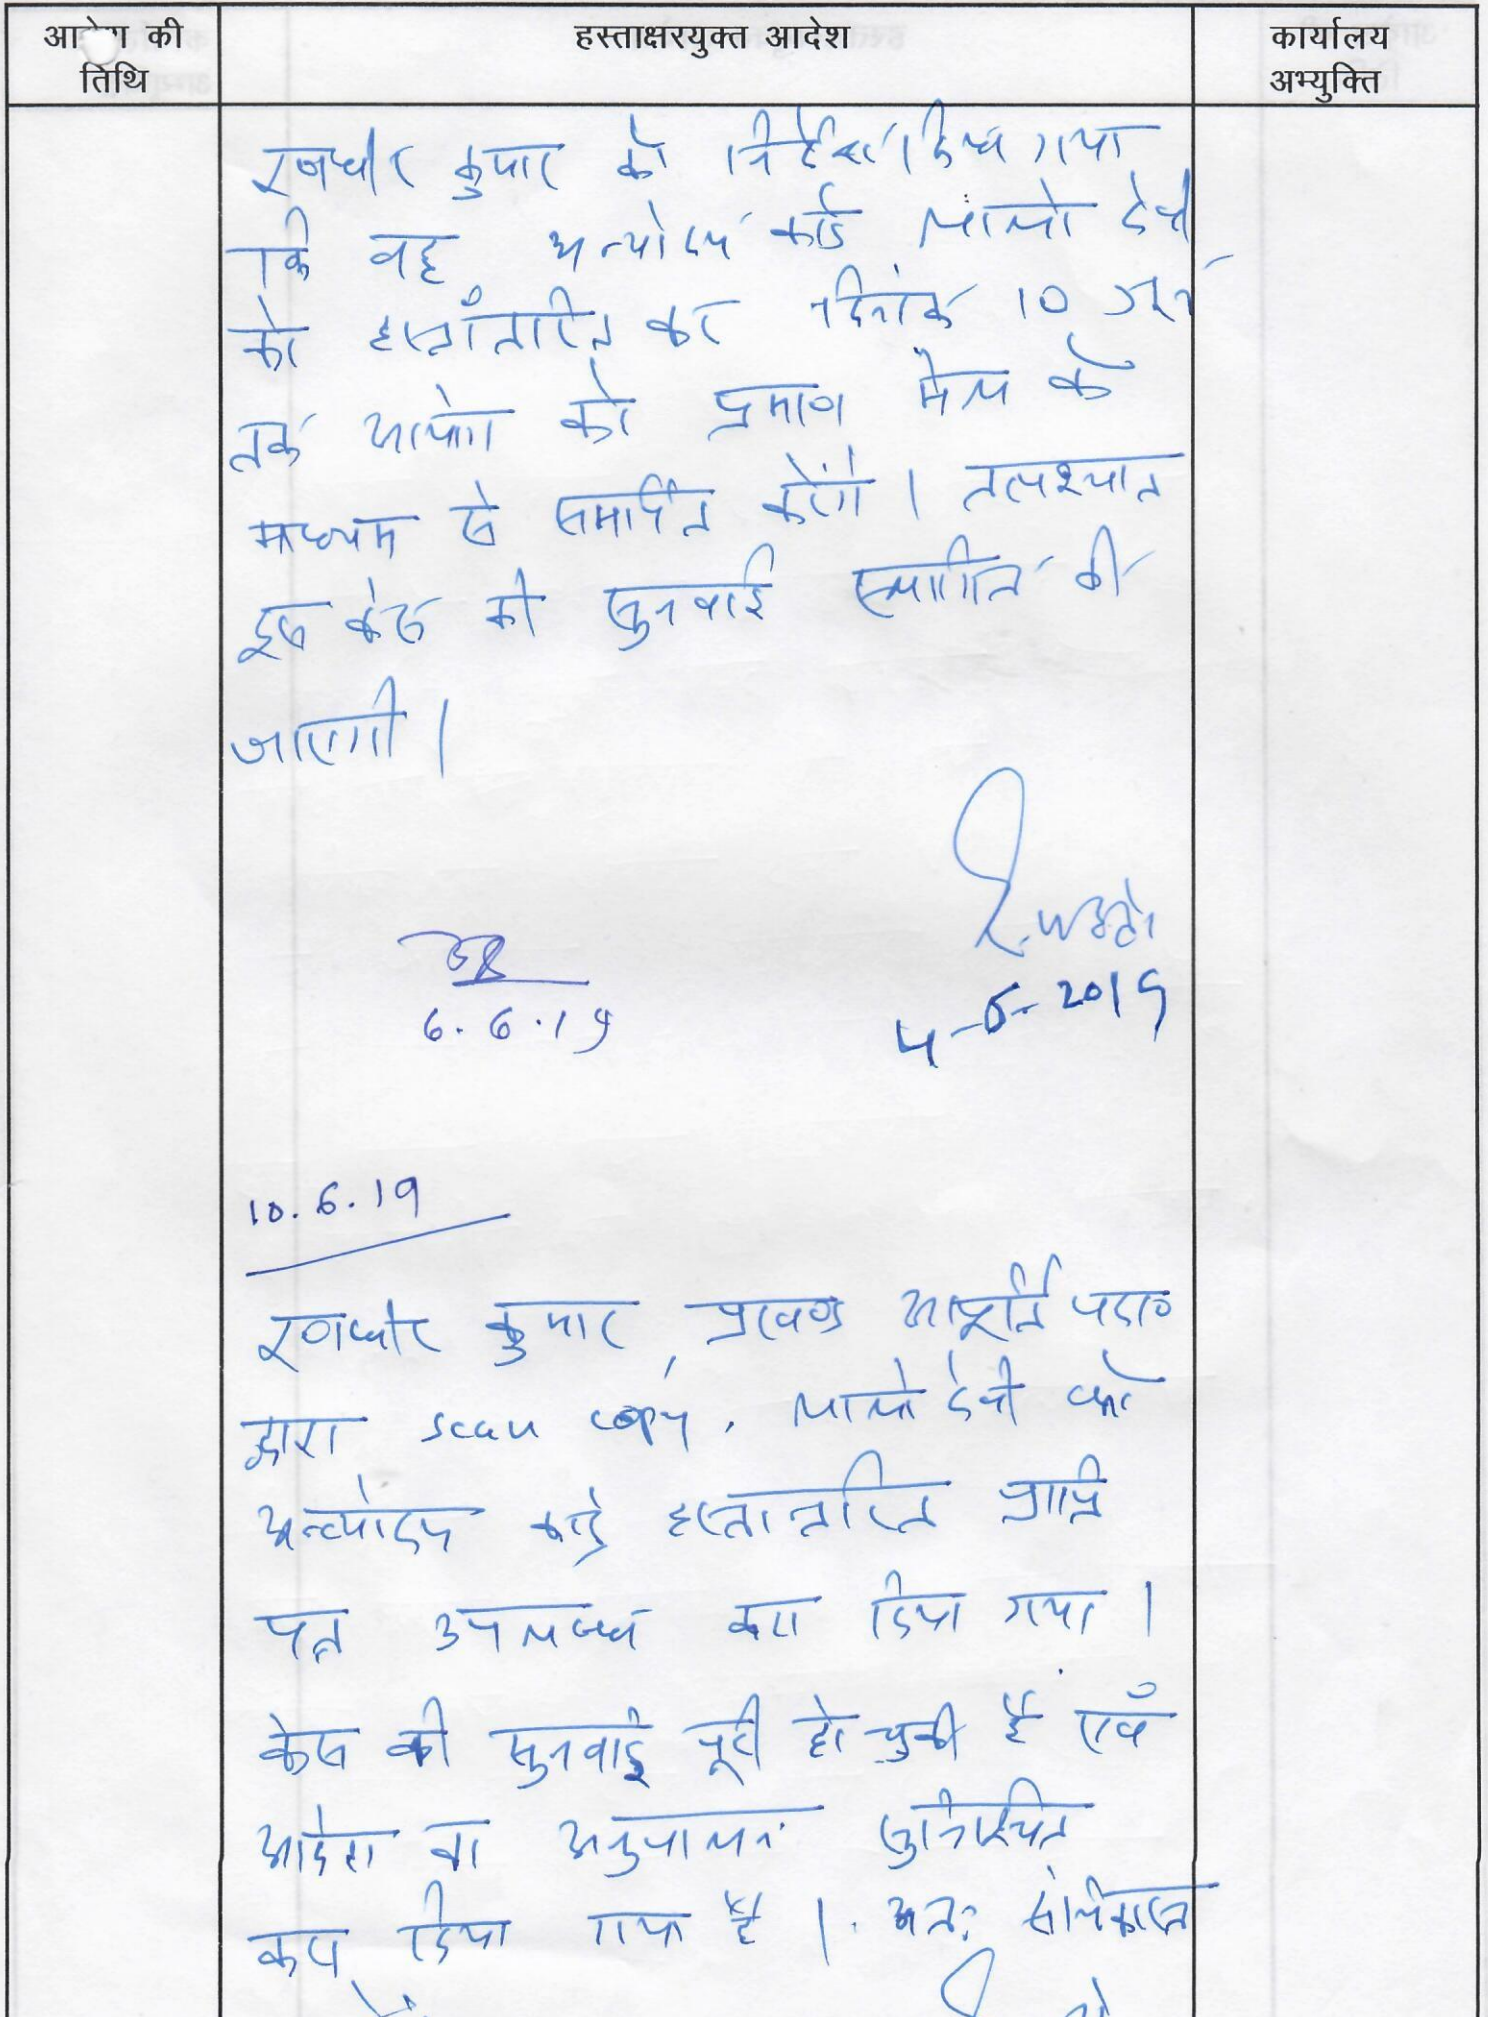 आदेश की तिथि
हस्ताक्षरयुक्त आदेश
कार्यालय अभ्युक्ति
रणधीर कुमार को निर्देश दिया गया
कि वह अन्त्योदय कार्ड लालो देवी
को हस्तांतरित कर दिनांक 10 जून
तक आयोग को प्रमाण मेल के
माध्यम से समर्पित करेंगे। तत्पश्चात
इस केस की सुनवाई स्थगित की
जाएगी।
6.6.19
4-6-2019
10.6.19
रणधीर कुमार, प्रखण्ड आपूर्ति पदा०
द्वारा scan copy, लालो देवी को
अन्त्योदय कार्ड हस्तान्तरित प्राप्ति
पत्र उपलब्ध करा दिया गया।
केस की सुनवाई पूरी हो चुकी है एवं
आदेश का अनुपालन सुनिश्चित
करा दिया गया है। अतः